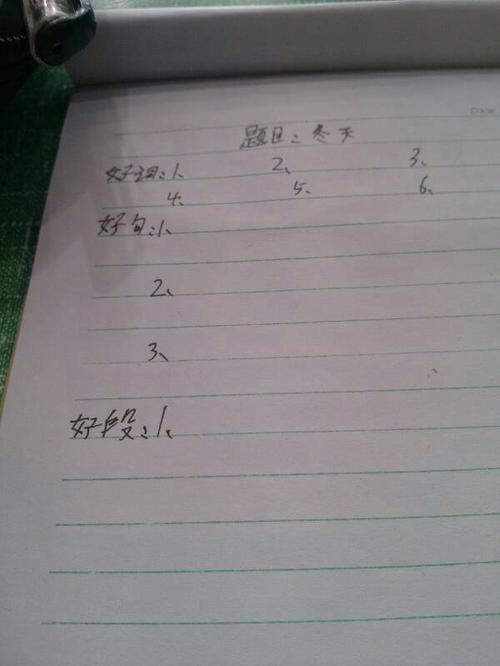 题目:冬天
好词:1、 2、 3、
4、 5、 6、
好句:1、
2、
3、
好段:1、